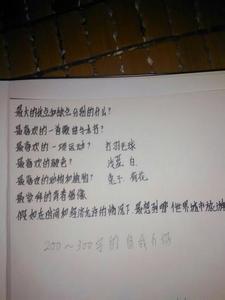 最大的优点和缺点分别是什么?
最喜欢的一首歌曲与书?
最喜欢的一项运动? 打羽毛球
最喜欢的颜色? 浅蓝、白
最喜欢的动物和植物? 兔子、荷花
最崇拜的青春偶像
假如在时间和经济允许的情况下最想到哪个世界城市旅游
200~300字的自我介绍